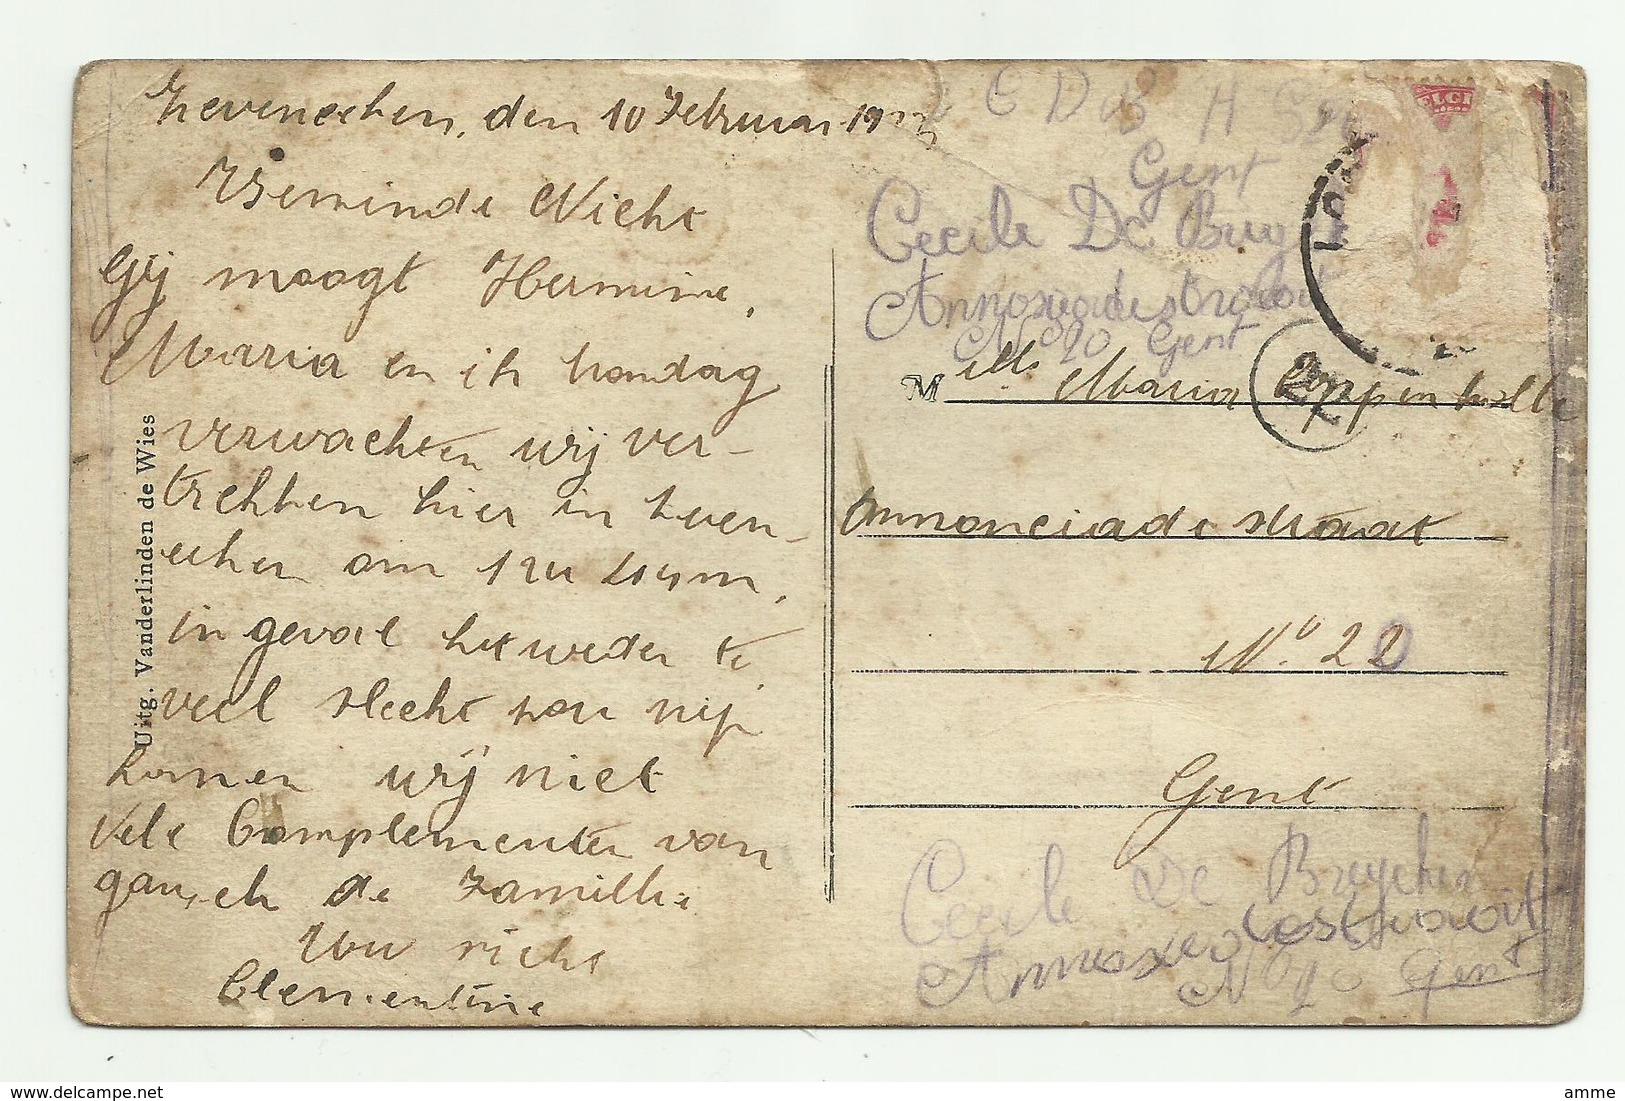 Zeveneeken, den 10 Februari 19
Beminde Nicht
Gij moogt Hermine,
Maria en ik Zondag
verwachten wij ver-
trekken hier in Zeven-
eeken om 1 ru 20 m,
in geval het weder te
veel slecht zou zijn
komen wij niet
Vele Complementen van
gansch de Familie
Uw nicht
Clementine
Uitg. Vanderlinden de Wies
C D B H
Gent
Cecile De Bruy
Annonciadestraat
No 20 Gent
M elle Maria Coppenholle
Annonciade straat
No. 220
Gent
Cecile De Bruycker
No 20 Gent
BELGI
22
amme